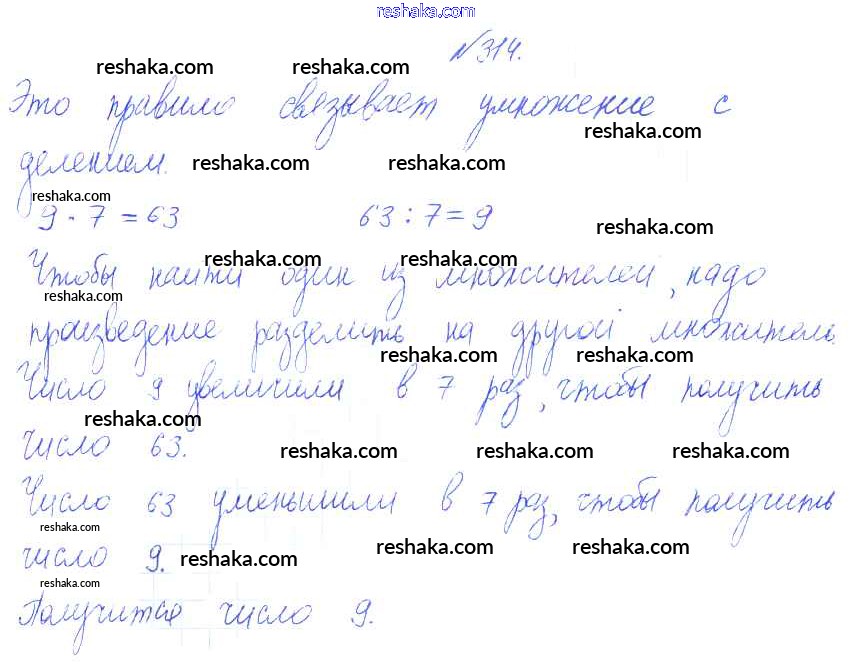 reshaka.com
№314.
reshaka.com reshaka.com
Это правило связывает умножение с
reshaka.com
делением. reshaka.com reshaka.com
reshaka.com
9 · 7 = 63 63 : 7 = 9 reshaka.com
reshaka.com reshaka.com
Чтобы найти один из множителей, надо
reshaka.com
произведение разделить на другой множитель.
reshaka.com reshaka.com
Число 9 увеличили в 7 раз, чтобы получить
reshaka.com
число 63. reshaka.com reshaka.com reshaka.com
Число 63 уменьшили в 7 раз, чтобы получить
reshaka.com
число 9. reshaka.com reshaka.com reshaka.com
reshaka.com
Получится число 9.